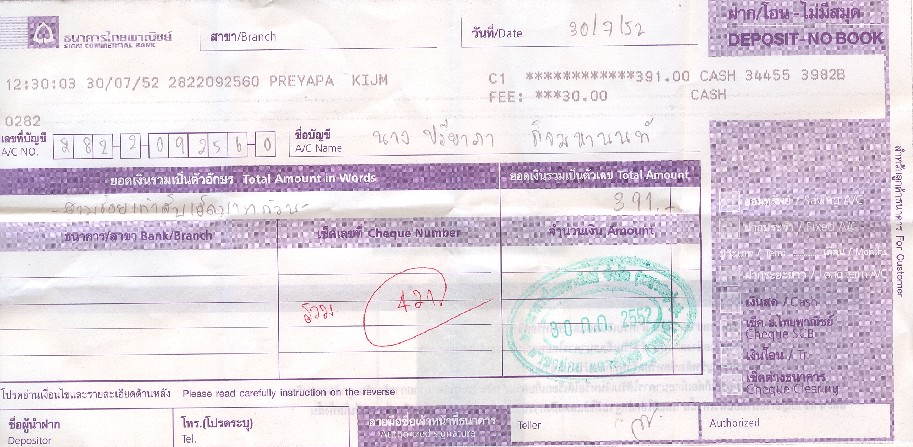 ธนาคารไทยพาณิชย์
SIAM COMMERCIAL BANK
สาขา/Branch
วันที่/Date 30/7/52
ฝาก/โอน - ไม่มีสมุด
DEPOSIT - NO BOOK
12:30:03 30/07/52 2822092560 PREYAPA KIJM
C1 ************391.00 CASH 34455 3982B
FEE: ***30.00 CASH
0282
เลขที่บัญชี
A/C NO. 282-2-09256-0
ชื่อบัญชี
A/C Name นาง ปรียาภา
ยอดเงินรวมเป็นตัวอักษร Total Amount in Words
ยอดเงินรวมเป็นตัวเลข Total Amount
-สามร้อยเก้าสิบเอ็ดบาทถ้วน-
391.-
ธนาคาร/สาขา Bank/Branch
เช็คเลขที่ Cheque Number
จำนวนเงิน Amount
รวม 421.-
30 ก.ค. 2552
สำหรับลูกค้าธนาคาร For Customer
เงินสด / Cash
เช็ค ธ.ไทยพาณิชย์
Cheque SCB
เงินโอน / Tr.
เช็คต่างธนาคาร
Cheque Clearing
โปรดอ่านเงื่อนไขและรายละเอียดด้านหลัง Please read carefully instruction on the reverse
ชื่อผู้นำฝาก
Depositor
โทร.(โปรดระบุ)
Tel.
ลายมือชื่อเจ้าหน้าที่ธนาคาร
Authorized Signature
Teller
Authorized